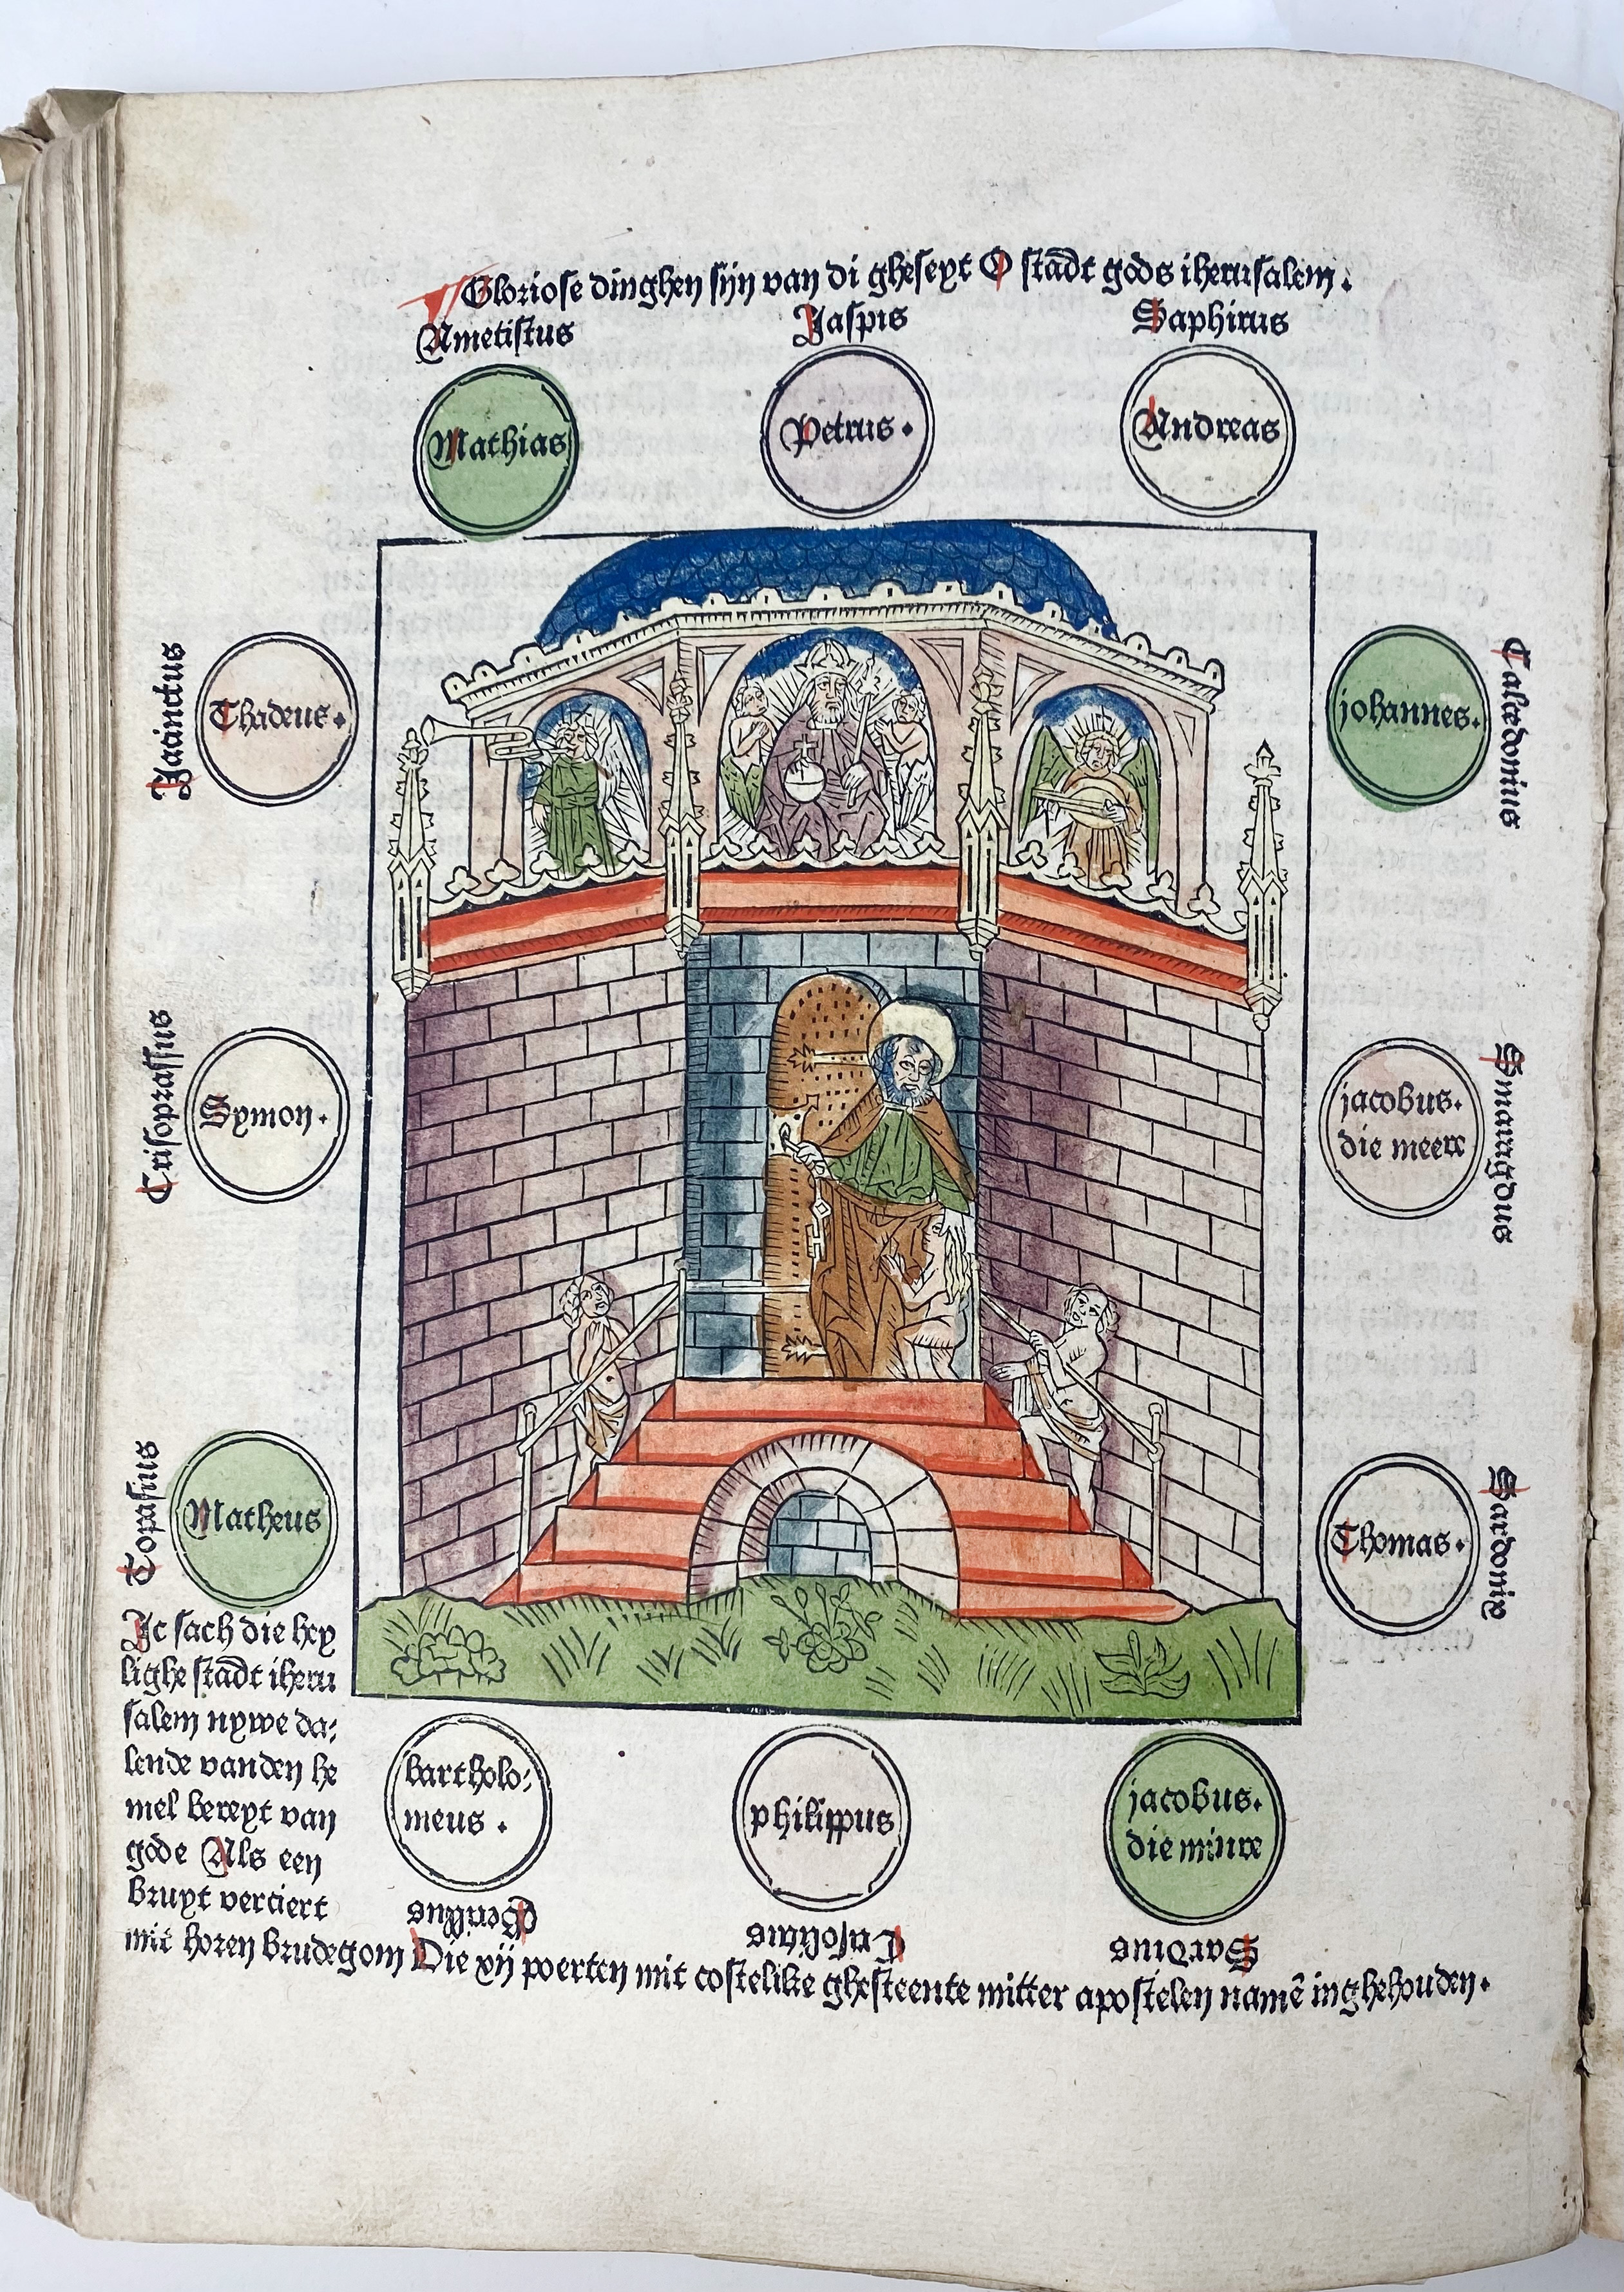 Gloriose dinghen sijn van di gheseyt O stadt gods iherusalem.
Ametistus
Jaspis
Saphirus
Mathias
Petrus.
Andreas
Jacinctus
Thadeus.
johannes.
Calcedonius
Crisoprassus
Symon.
jacobus.
die meere
Smaragdus
Topasius
Matheus
Thomas.
Sardonix
Jc sach die hey
lighe stadt iheru
salem nywe da:
lende vanden he
mel bereyt van
gode Als een
bruyt verciert
mit horen brudegom Die xij poerten mit costelike ghesteente mitter apostelen namē inghehouden.
bartholo:
meus.
philippus
jacobus.
die minre
Berillus
Crisolitus
Sardius